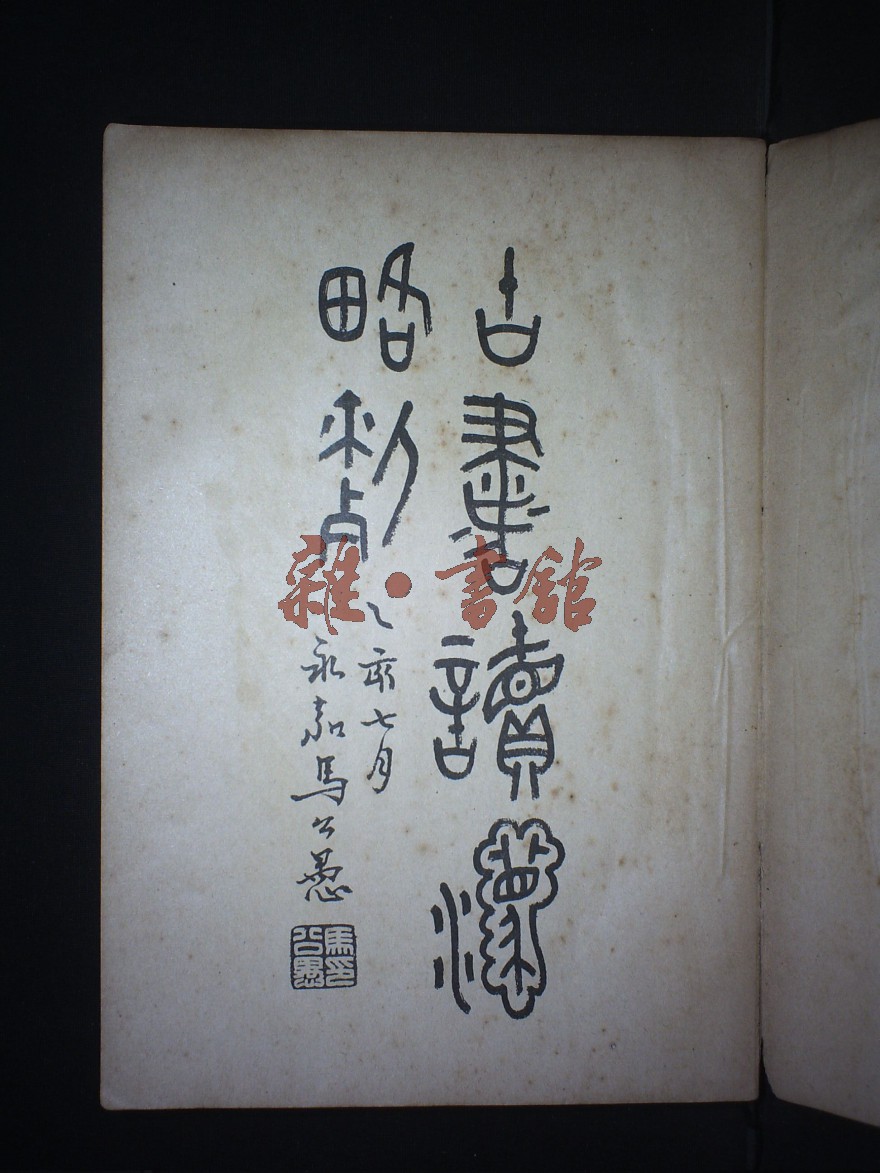 古書讀法
略例
乙亥七月
永嘉馬公愚
馬印
公愚
雜·書館